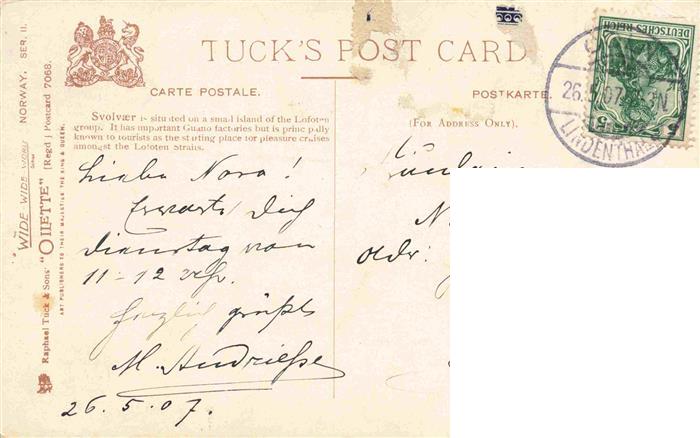 TUCK'S POST CARD
CARTE POSTALE.
POSTKARTE.
(FOR ADDRESS ONLY).
Svolvær is situated on a small island of the Lofoten
group. It has important Guano factories but is principally
known to tourists as the starting place for pleasure cruises
amongst the Lofoten Straits.
Liebe Nora!
Erwarte Dich
Dienstag von
11-12 Uhr.
Herzlich grüßt
M. Andrießse
26.5.07.
Fräulein
N.
Adr:
DEUTSCHES REICH
5 5
26.5.07. N
LINDENTHAL
"WIDE WIDE WORLD NORWAY, SER. II.
Raphael Tuck & Sons' "OILETTE" [Regd.] Postcard 7068.
ART PUBLISHERS TO THEIR MAJESTIES THE KING & QUEEN.